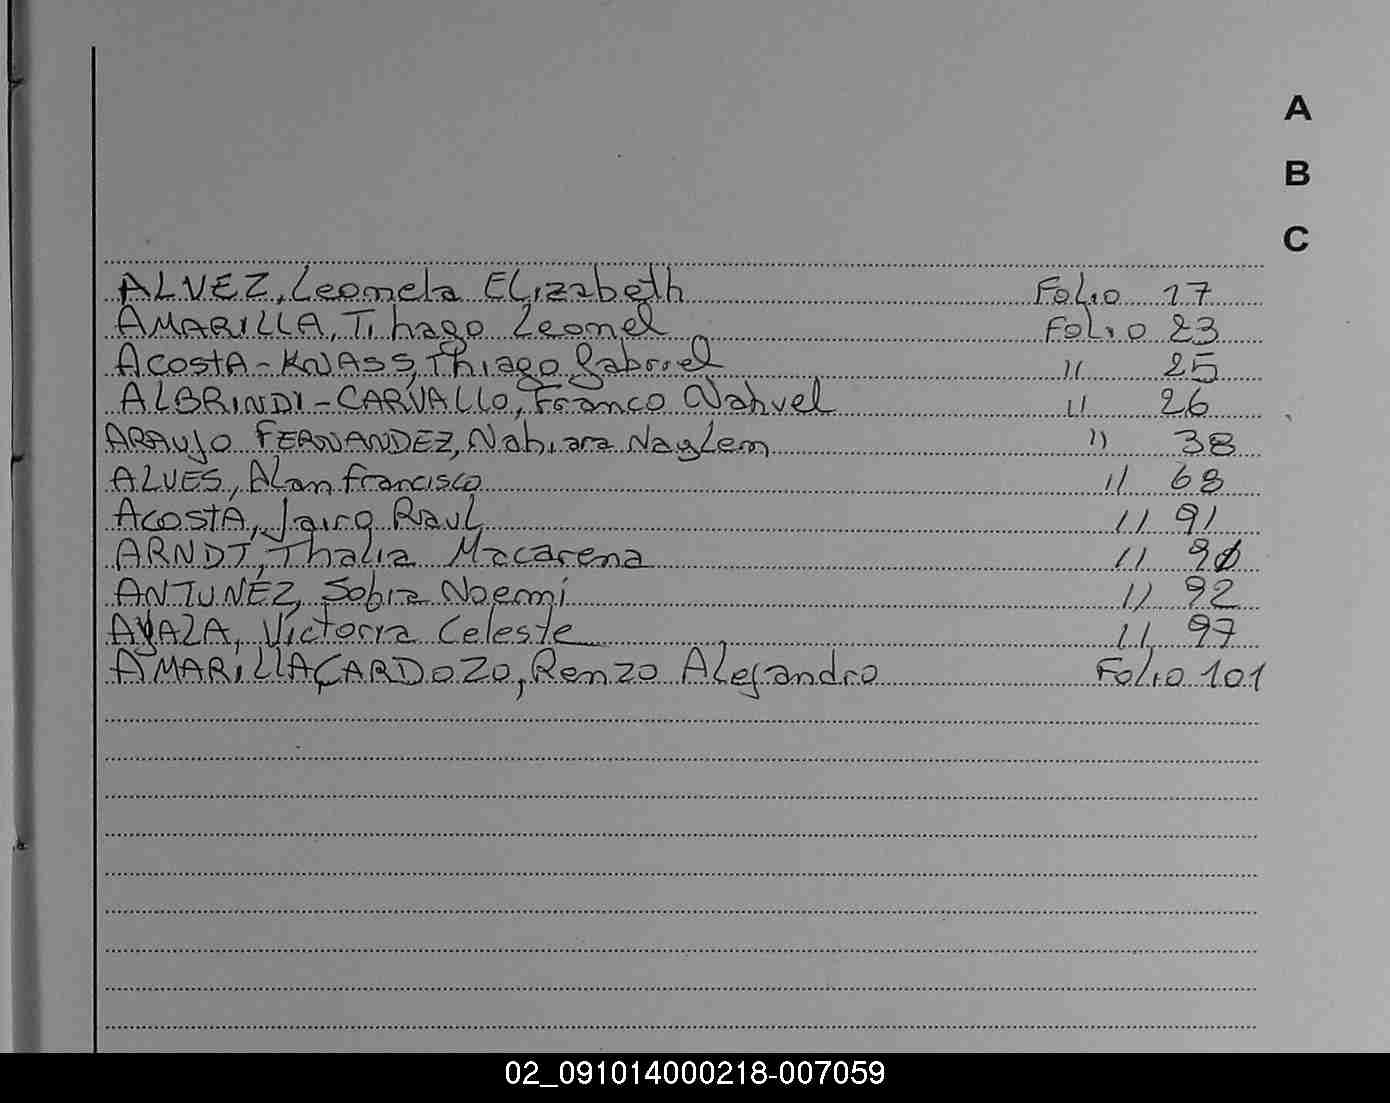 A
B
C
ALVEZ, Leomela Elizabeth Folio 17
AMARILLA, Tihago Leonel Folio 23
ACOSTA-KNASS, Thiago Gabriel " 25
ALBRINDI-CARVALLO, Franco Nahuel " 26
ARAUJO FERNANDEZ, Nahiara Naylem " 38
ALVES, Alan Francisco " 68
ACOSTA, Jairo Raul " 91
ARNDT, Thalia Macarena " 90
ANTUNEZ, Noemi " 92
AYALA, Victoria Celeste " 97
AMARILLA CARDOZO, Renzo Alejandro Folio 101
02_091014000218-007059